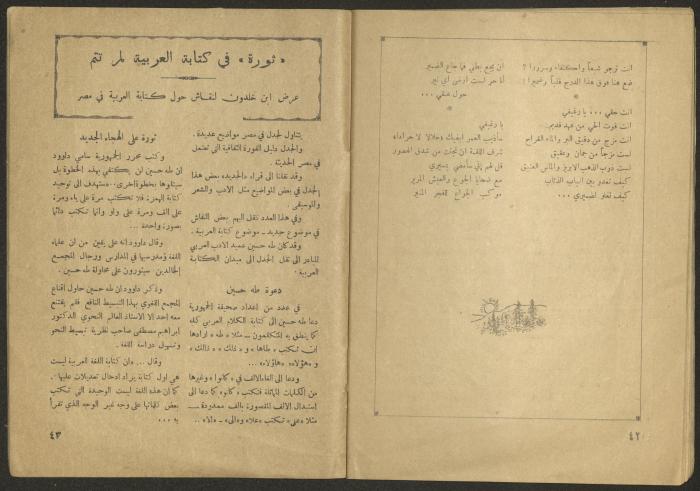 انت ترجو شبعاً واكتفاء وسرورا ؟
ضع هنا فوق هذا الدرج قلباً وضميرا
*
انت حقي . . . يا رغيفي
انت قوت الحي من عهد قديم .
انت مزيج من دقيق البر والماء القراح
لست مزجاً من جمان وعقيق
لست ذوب الذهب الابريز والماس العتيق
كيف تعدو بين انياب الذئاب
كيف تغدو لضميري . . .
ان يجع بطني فما جاع الضمير
انا حر لست ارضى اي نير
حول عنقي . . .
*
يا رغيفي
شرف اللقمة ان تبحث عن شدق الهصور
قل لهم إني سأمضي بمسيري
مع ضحايا الجوع والعيش المرير
موكب الجوع لفجر
٤٢
« ثورة » في كتابة العربية لم تتم
عرض ابن خلدون لنقاش حول كتابة العربية في مصر
يتناول الجدل في مصر مواضيع عديدة .
والجدل دليل الفورة الثقافية التي تعتمل
في مصر الحديثة .
وقد نقلنا الى قراء «الجديد» بعض هذا
الجدل في بعض المواضيع مثل الادب والشعر
والموسيقى .
وفي هذا العدد ننقل اليهم بعض النقاش
في موضوع جديد ـ موضوع كتابة العربية .
وقد كان طه حسين عميد الادب العربي
المبادر الى نقل الجدل الى ميدان الكتابة
العربية .
دعوة طه حسين
في عدد من اعداد صحيفة الجمهورية
دعا طه حسين الى كتابة الكلام العربي كله
كما ينطق به المتكلمون ـ مثلا « طه » ارادها
ان تكتب « طاها » و « ذلك » « ذالك »
و «هؤلاء» «هاؤلاء» ...
ودعا الى الغاء الالف في «كانوا» وغيرها
من الكلمات المماثلة فتكتب «كانو» كما دعا الى
استبدال الالف المقصورة بالف ممدودة ـ
مثلا «على» تكتب «علا» و«الى» ـ «الا» ..
ثورة على الهجاء الجديد
وكتب محرر الجمهورية سامي داوود
ان طه حسين لن يكتفي بهذه الخطوة بل
سيتلوها بخطوة اخرى . «ستهدف الى توحيد
كتابة الهمزة فلا تكتب مرة على ياء ومرة
على الف ومرة على واو وانما تكتب دائما
بصورة واحدة ...
وقال داوود انه على يقين من ان علماء
اللغة ومدرسيها في المدارس ورجال المجمع
الخالدين سيثورون على محاولة طه حسين .
وذكر داوود ان طه حسين حاول اقناع
المجمع اللغوي بهذا التبسيط النافع فلم يقتنع
معه احد الا الاستاذ العالم النحوي الدكتور
ابراهيم مصطفى صاحب نظرية تبسيط النحو
وتسهيل دراسة اللغة .
وقال ... «ان كتابة اللغة العربية ليست
هي اول كتابة يراد ادخال تعديلات عليها .
كما ان هذه اللغة ليست الوحيدة التي تكتب
بعض كلماتها على وجه غير الوجه الذي تقرأ
به ...
٤٣